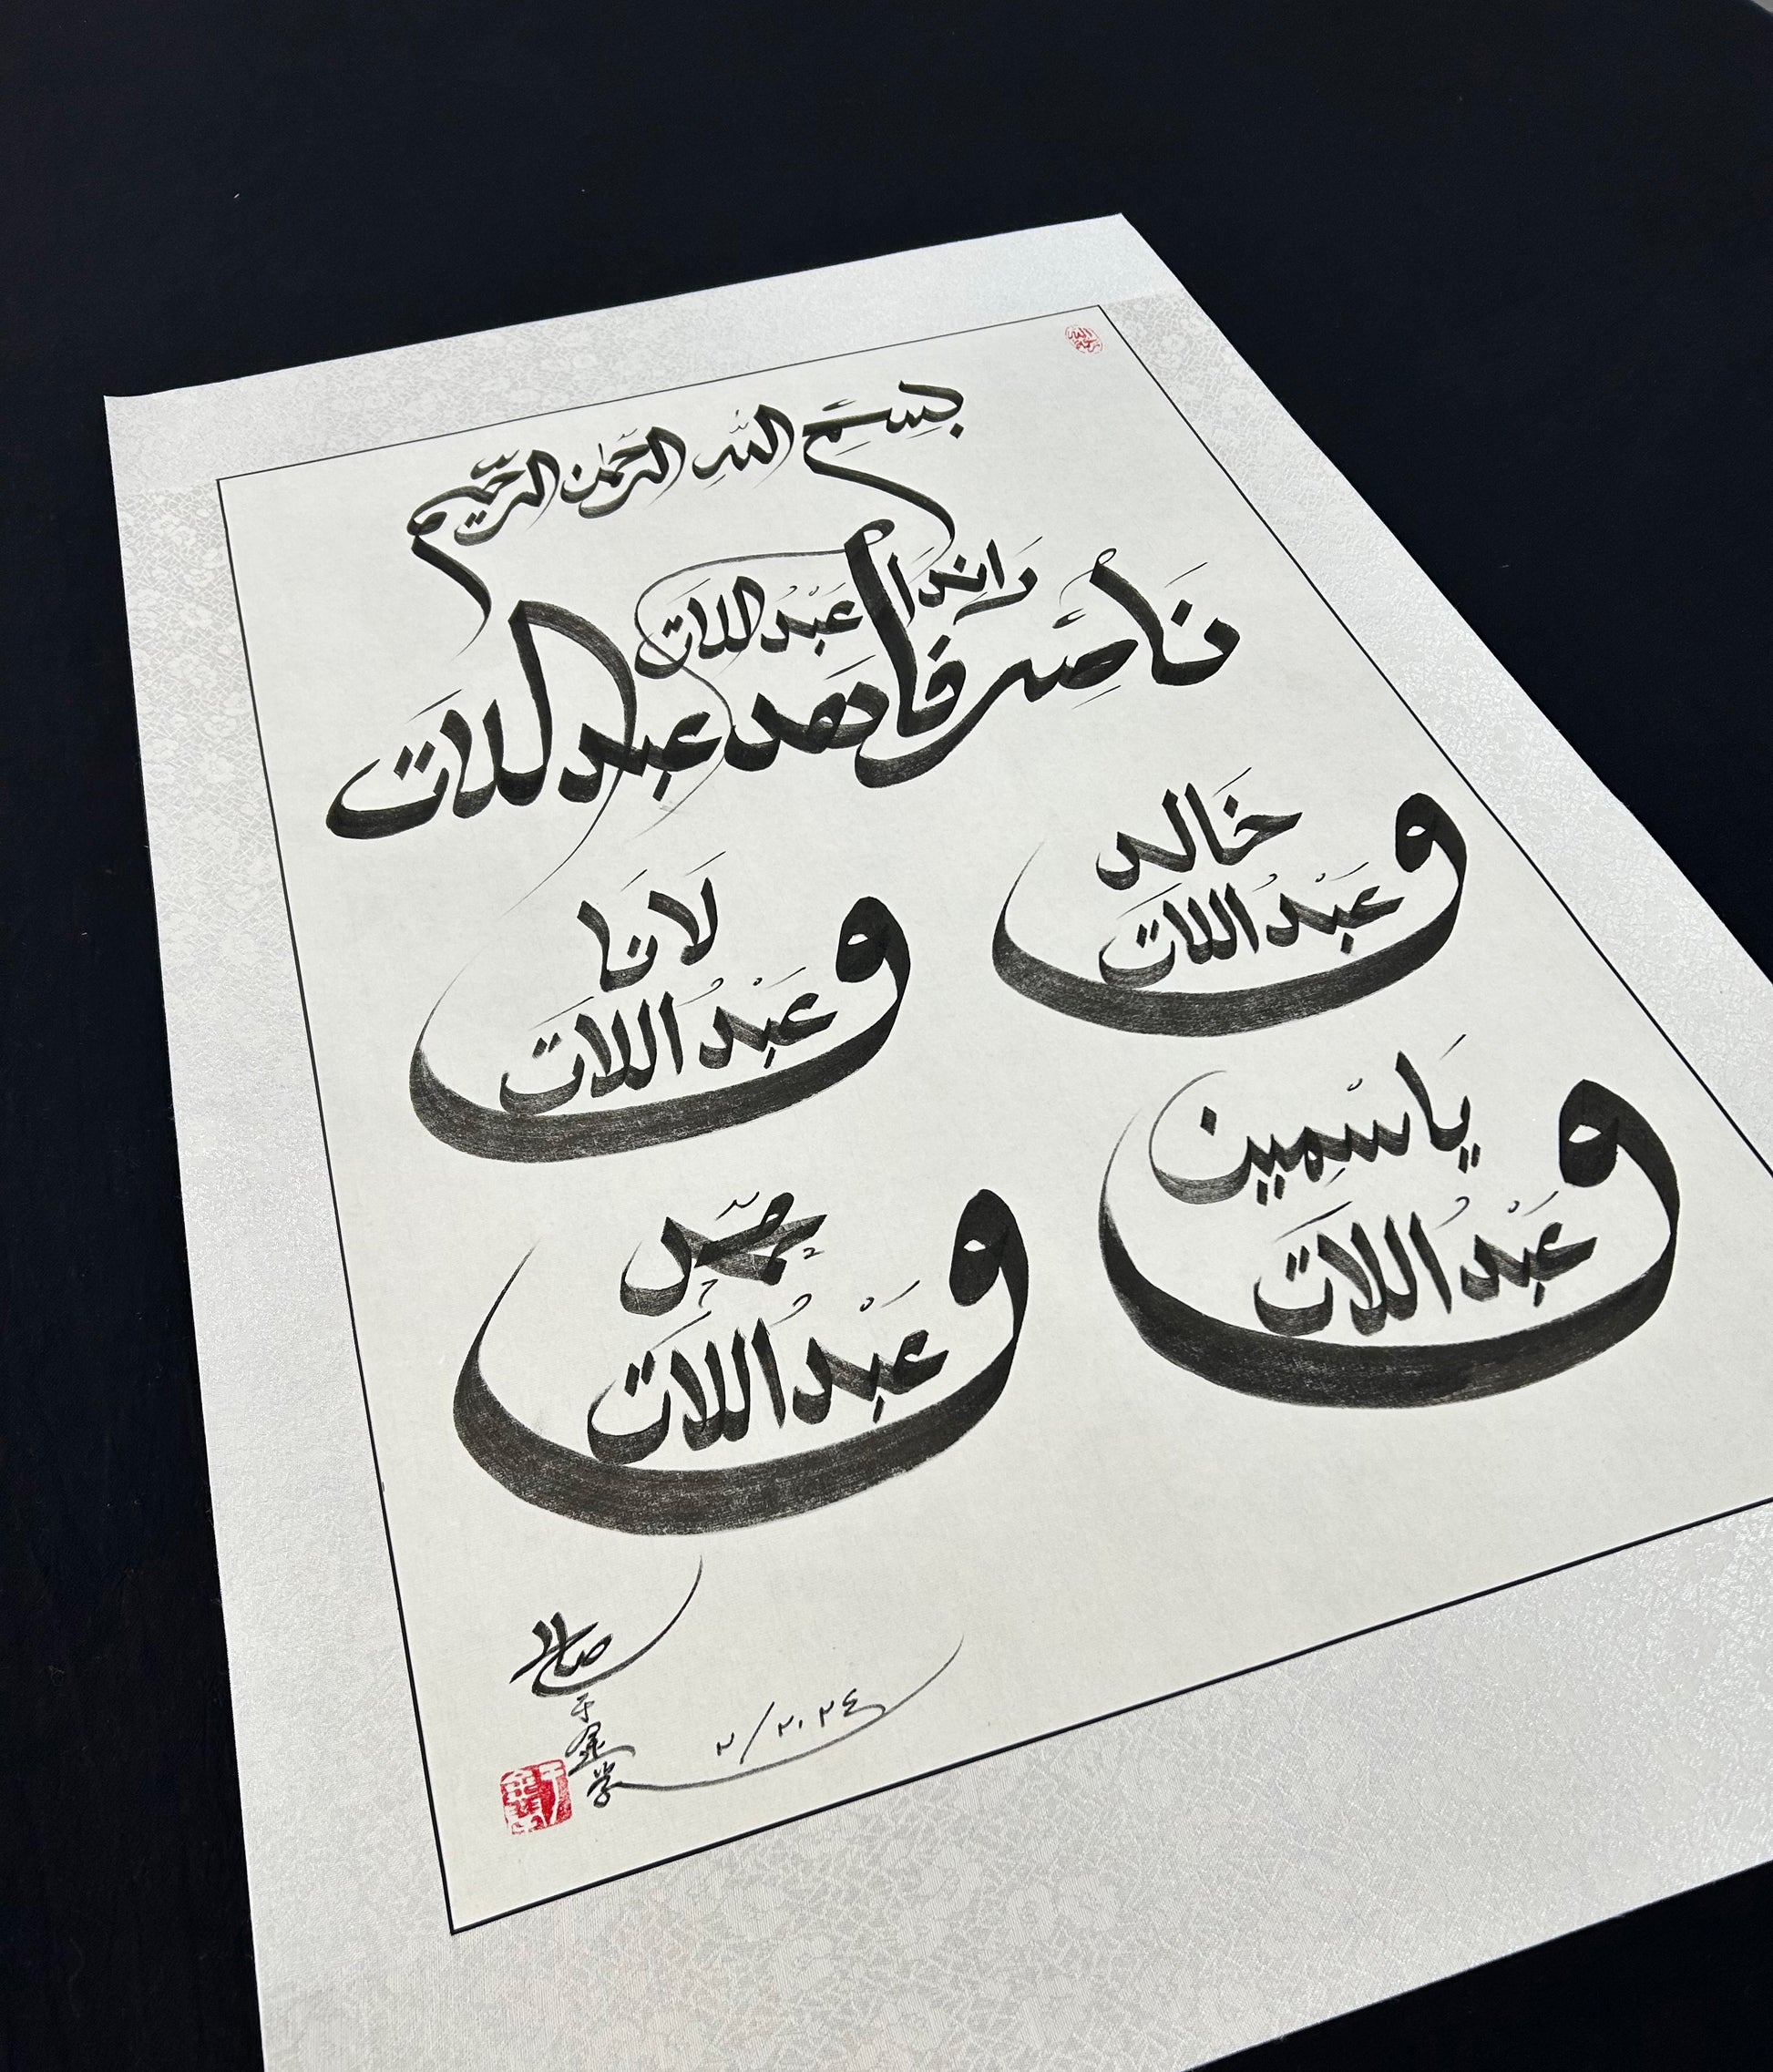 بسم الله الرحمن الرحيم
راندا عبد اللات
ناصر فاهد عبد اللات
و خالد
عبد اللات
و لانا
عبد اللات
و ياسمين
عبد اللات
و محمد
عبد اللات
صالح
٢/٢٠٢٤